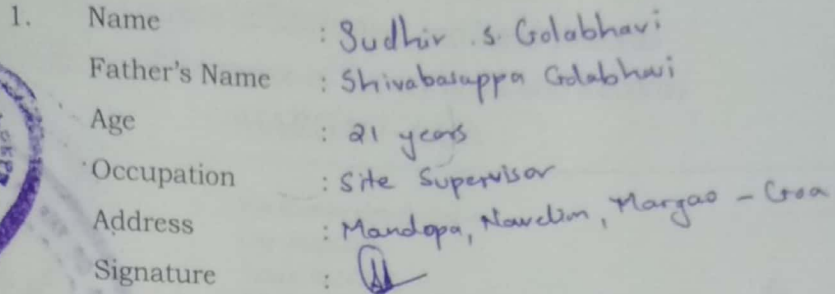 1. Name : Sudhir .S. Golabhavi
Father's Name : Shivabasappa Golabhavi
Age : 21 years
Occupation : Site Supervisor
Address : Mandopa, Navelim, Margao - Goa
Signature :